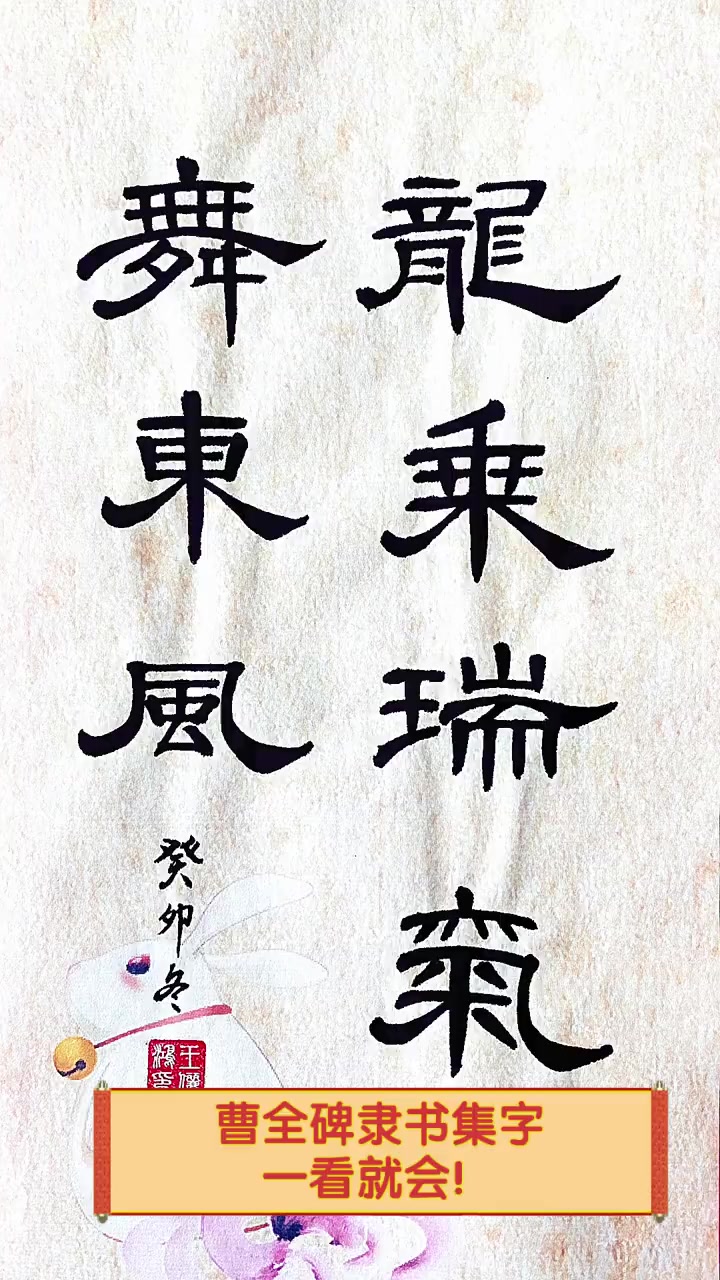 龍乗瑞氣
舞東風
癸卯冬
曹全碑隶书集字
一看就会!